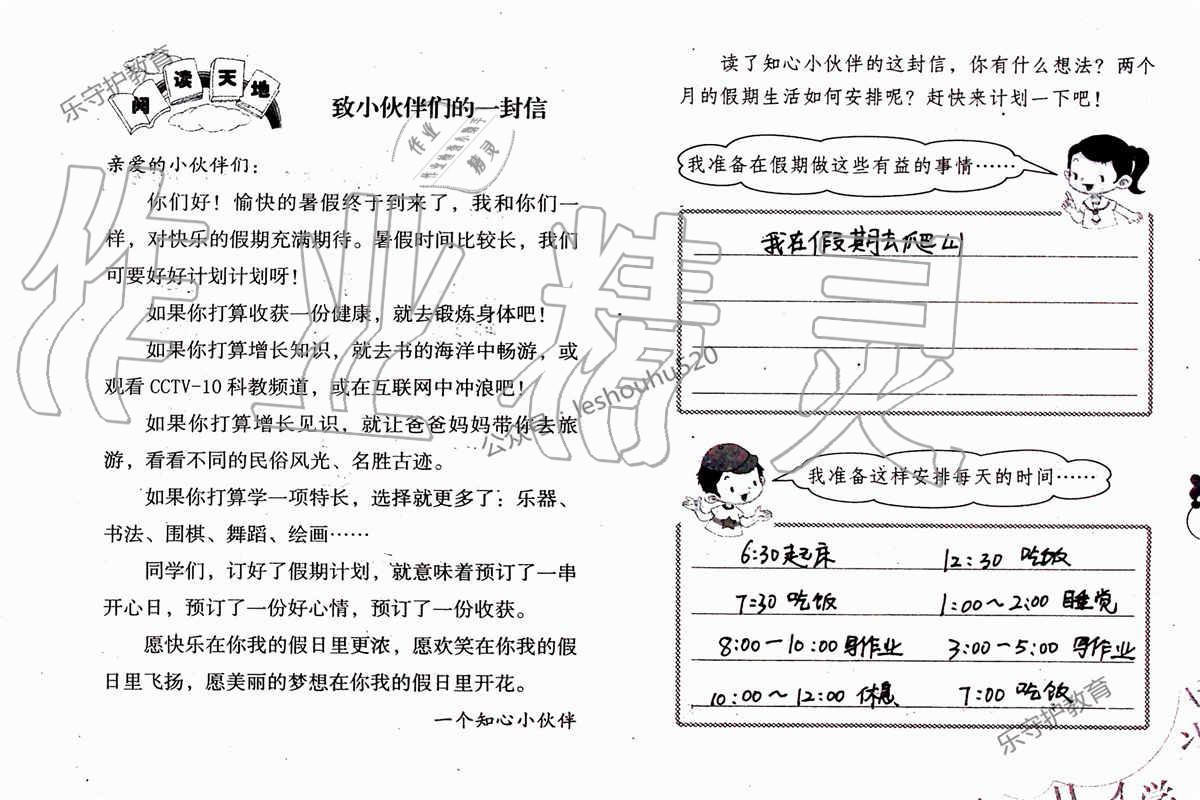 阅读天地
致小伙伴们的一封信
亲爱的小伙伴们：
你们好！愉快的暑假终于到来了，我和你们一
样，对快乐的假期充满期待。暑假时间比较长，我们
可要好好计划计划呀！
如果你打算收获一份健康，就去锻炼身体吧！
如果你打算增长知识，就去书的海洋中畅游，或
观看CCTV-10科教频道，或在互联网中冲浪吧！
如果你打算增长见识，就让爸爸妈妈带你去旅
游，看看不同的民俗风光、名胜古迹。
如果你打算学一项特长，选择就更多了：乐器、
书法、围棋、舞蹈、绘画……
同学们，订好了假期计划，就意味着预订了一串
开心日，预订了一份好心情，预订了一份收获。
愿快乐在你我的假日里更浓，愿欢笑在你我的假
日里飞扬，愿美丽的梦想在你我的假日里开花。
一个知心小伙伴
读了知心小伙伴的这封信，你有什么想法？两个
月的假期生活如何安排呢？赶快来计划一下吧！
我准备在假期做这些有益的事情……
我在假期去爬山
我准备这样安排每天的时间……
6:30起床 12:30 吃饭
7:30 吃饭 1:00～2:00 睡觉
8:00—10:00写作业 3:00～5:00 写作业
10:00～12:00 休息 7:00 吃饭
乐守护教育
作业精灵
公众号：leshouhu520
乐守护教育
作业
精灵